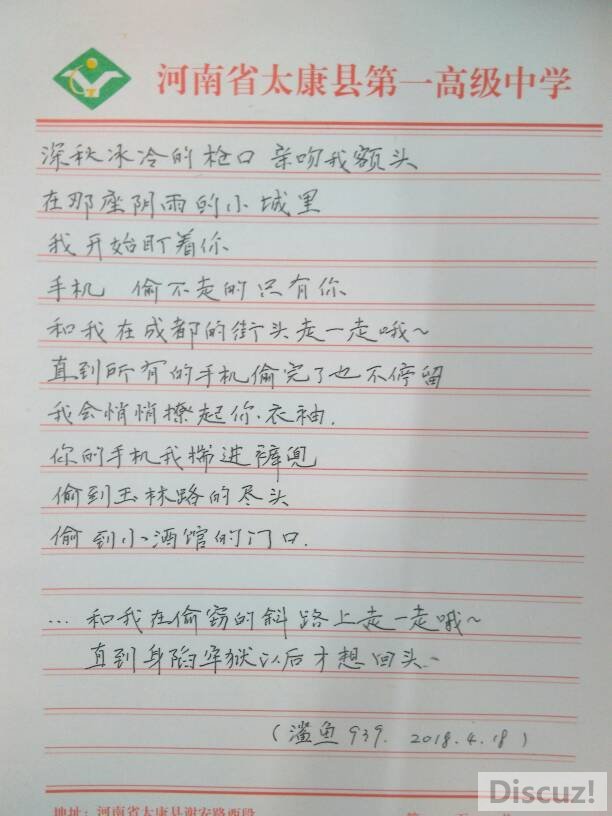 河南省太康县第一高级中学
深秋冰冷的枪口 亲吻我额头
在那座阴雨的小城里
我开始盯着你
手机 偷不走的只有你
和我在成都的街头走一走哦~
直到所有的手机偷完了也不停留
我会悄悄撩起你衣袖.
你的手机我揣进裤兜
偷到玉林路的尽头
偷到小酒馆的门口.
... 和我在偷窃的斜路上走一走哦~
直到身陷牢狱以后才想回头~
(鲨鱼939. 2018.4.18)
地址: 河南省太康县谢安路西段
Discuz!